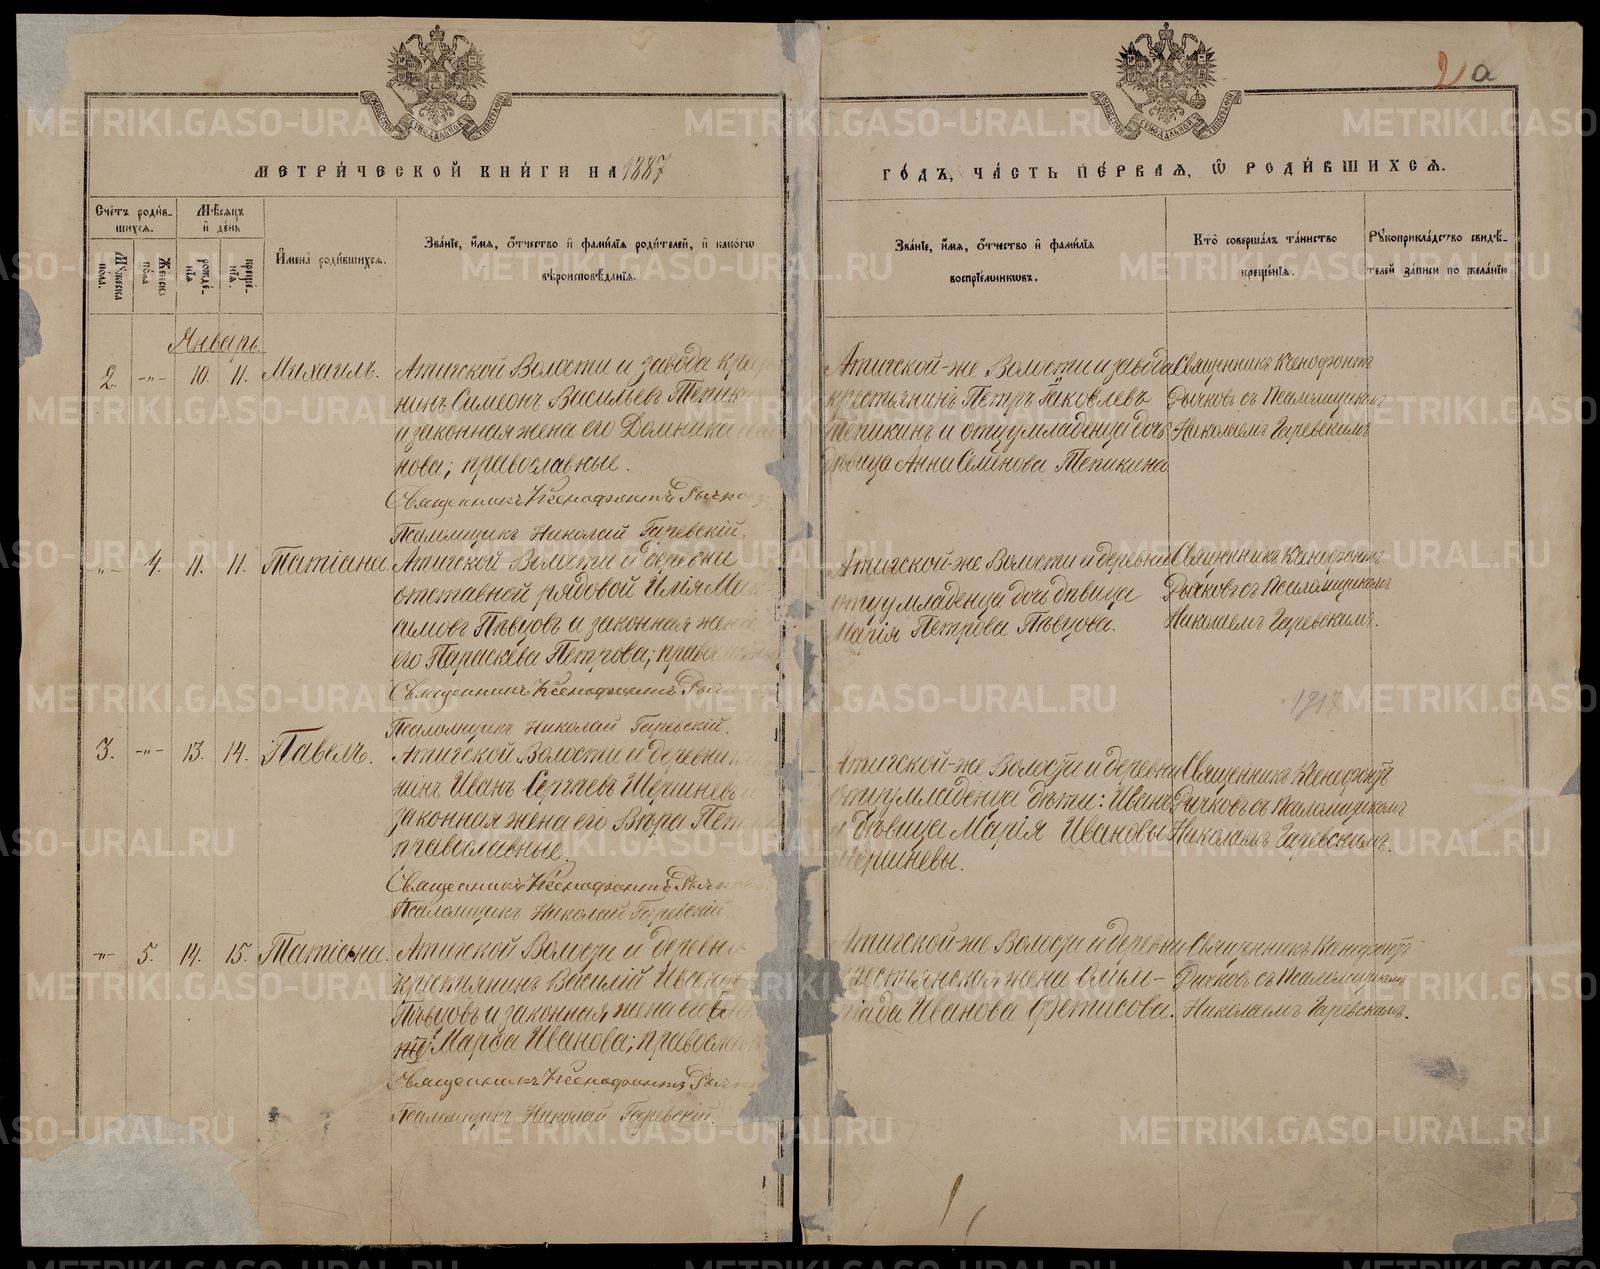 МОСКОВСКОЙ СѴНОДАЛЬНОЙ ТИПОГРАФІИ
МОСКОВСКОЙ СѴНОДАЛЬНОЙ ТИПОГРАФІИ
2 а
МЕТРИ́ЧЕСКОЙ КНИ́ГИ НА 1887
ГО́ДЪ, ЧА́СТЬ ПЕ́РВАЯ, Ѽ РОДИ́ВШИХСЯ.
Сче́тъ роди́в-
шихся.
Мѣ́сяцъ
и̑ де́нь
Му́жеска по́ла.
Же́нска по́ла
рожде́-
нія
креще́-
нія.
И̑мена̀ роди́вшихся.
Зва́ніе, и̑́мя, ѻ̑́тчество и̑ фами́лія роди́телей, и̑ како́гѡ
вѣроисповѣ́данія.
Зва́ніе, и̑́мя, ѻ̑́тчество и̑ фами́лія
воспріе́мниковъ.
Кто̀ соверша́лъ та́инство
креще́нія.
Рꙋкоприкла́дство свидѣ́-
телей за́писи по жела́нію
Январь.
2. -„- 10. 11. Михаилъ.
Атигской Волости и завода
нинъ Симеонъ Васильевъ
и законная жена его Домника
нова; православные.
Священникъ Ксенофонтъ Рычковъ
Псаломщикъ Николай Гаревскій.
Атигской-же Волости и завода
крестьянинъ Петръ Іаковлевъ
Тепикинъ и отцу младенца дочь
дѣвица Анна Семенова Тепикина
Священникъ Ксенофонтъ
Рычковъ съ Псаломщикомъ
Николаемъ Гаревскимъ
-„- 4. 11. 11. Татіана.
Атигской Волости и деревни
отставной рядовой Илія
аиловъ Пѣвцовъ и законная жена
его Параскева Петрова;
Священникъ Ксенофонтъ
Псаломщикъ Николай Гаревскій.
Атигской-же Волости и деревни
отцу младенца дочь дѣвица
Марія Петрова Пѣвцова.
Священникъ Ксенофонтъ
Рычковъ съ Псаломщикомъ
Николаемъ Гаревскимъ.
1917
3. -„- 13. 14. Павелъ.
Атигской Волости и деревни
нинъ Иванъ Сергѣевъ Шершневъ и
законная жена его Вѣра
православные.
Священникъ Ксенофонтъ Рычковъ
Псаломщикъ Николай Гаревскій.
Атигской-же Волости и деревни
отцу младенца дѣти: Иванъ
и дѣвица Марія Ивановы
Шершневы.
Священникъ Ксенофонтъ
Рычковъ съ Псаломщикомъ
Николаемъ Гаревскимъ.
-„- 5. 14. 15. Татіана.
Атигской Волости и деревни
крестьянинъ Василій Ивановъ
Пѣвцовъ и законная жена его
Марѳа Иванова;
Священникъ Ксенофонтъ
Псаломщикъ Николай Гаревскій.
Атигской-же Волости и деревни
крестьянская жена Олим-
піада Иванова Фетисова.
Священникъ Ксенофонтъ
Рычковъ съ Псаломщикомъ
Николаемъ Гаревскимъ.
METRIKI.GASO-URAL.RU